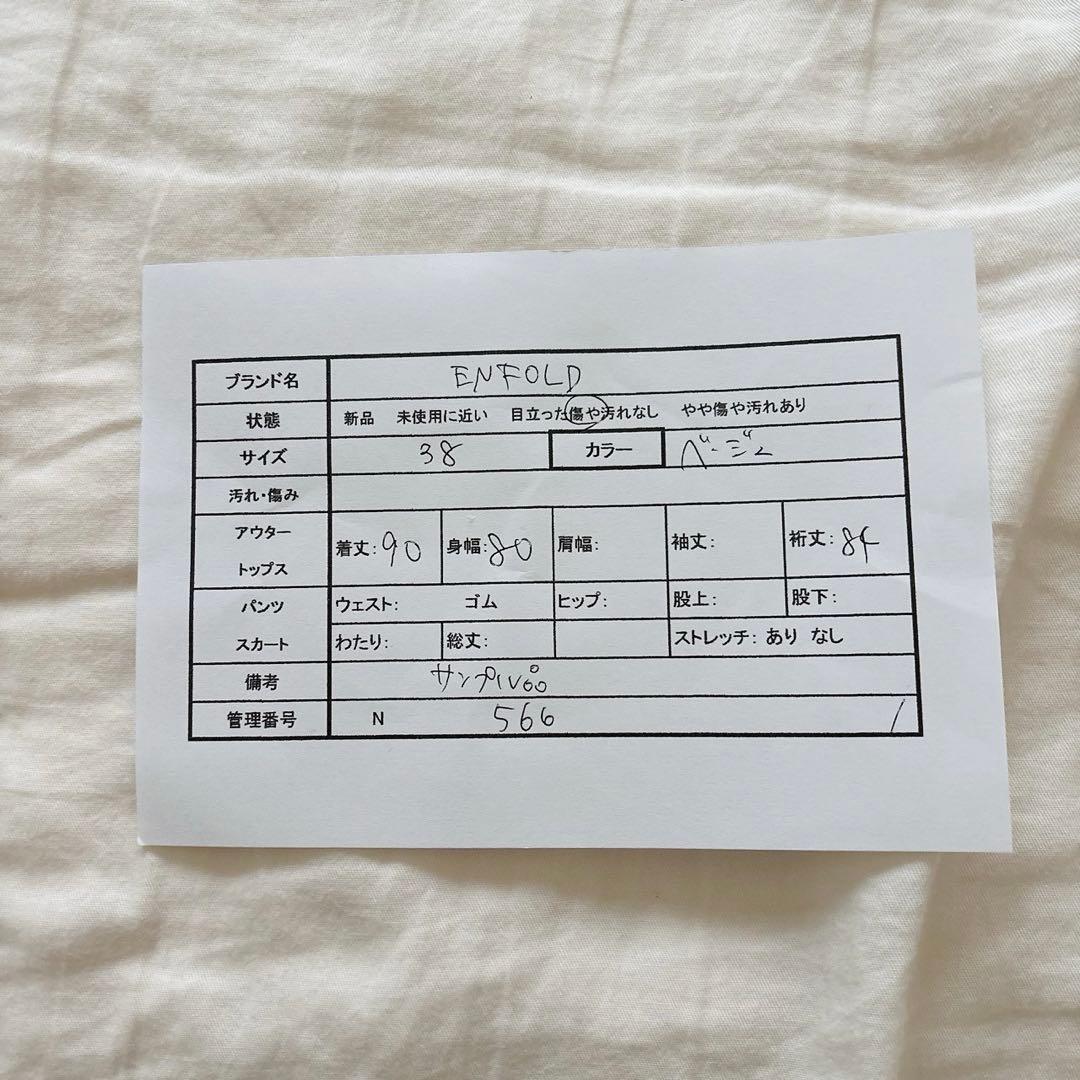 ブランド名 ENFOLD
状態 新品 未使用に近い 目立った傷や汚れなし やや傷や汚れあり
サイズ 38 カラー ベージュ
汚れ・傷み
アウター
トップス
着丈:90 身幅:80 肩幅: 袖丈: 裄丈:84
パンツ ウェスト: ゴム ヒップ: 股上: 股下:
スカート わたり: 総丈: ストレッチ: あり なし
備考 サンプル品
管理番号 N 566 /